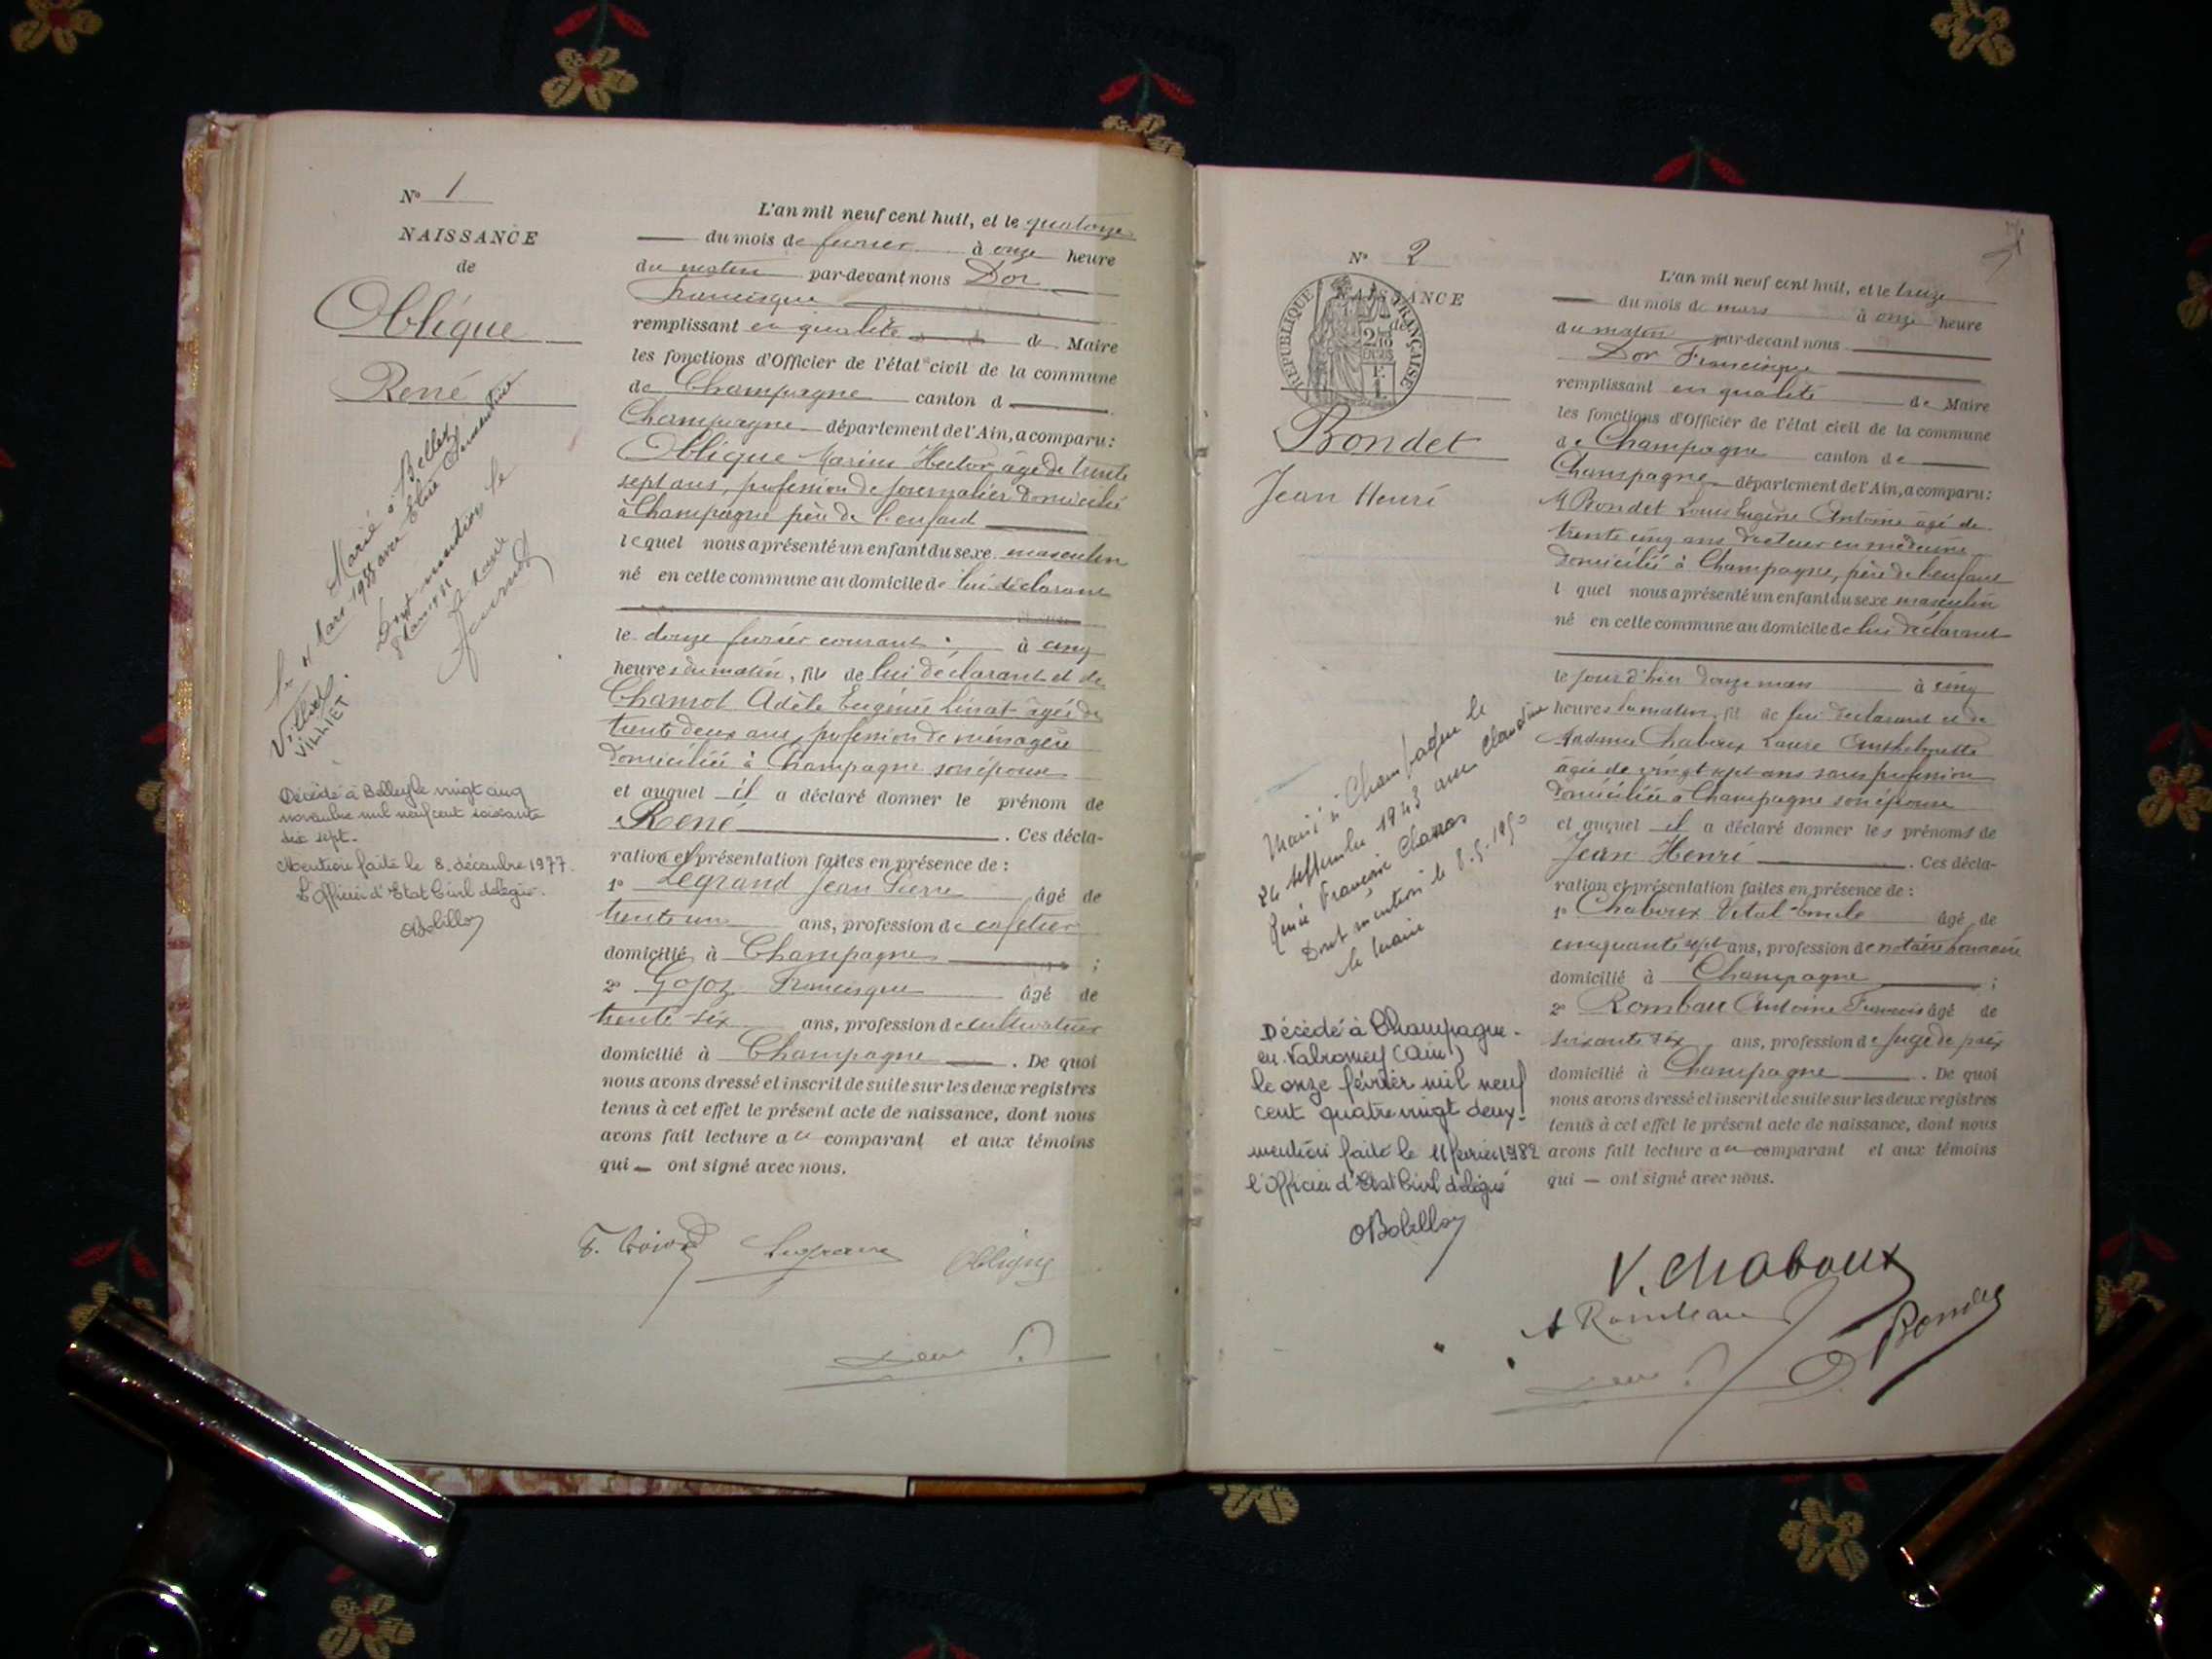 N° 1
NAISSANCE
de
Oblique
René
Marié à Belley
le 4 Mars 19 avec Elise Clémentine
Villiet
VILLIET
Dont mention le
8 Mars
Le Maire
Décédé à Belley le vingt cinq
novembre mil neuf cent soixante
dix sept.
Mention faite le 8 décembre 1977.
L'Officier d'Etat Civil délégué.
OBolillon
L'an mil neuf cent huit, et le quatorze
du mois de février à onze heure
du matin par-devant nous Dor
Francisque
remplissant en qualité de Maire
les fonctions d'Officier de l'état civil de la commune
de Champagne canton d
Champagne département de l'Ain, a comparu :
Oblique Marius Hector âgé de trente
sept ans, profession de journalier domicilié
à Champagne père de l'enfant
lequel nous a présenté un enfant du sexe masculin
né en cette commune au domicile de lui déclarant
le douze février courant à cinq
heures du matin, fils de lui déclarant et de
Chamot Adèle Eugénie âgée de
trente deux ans, profession de ménagère
domiciliée à Champagne son épouse
et auquel il a déclaré donner le prénom de
René . Ces décla-
ration et présentation faites en présence de :
1° Legrand Jean Pierre âgé de
trente un ans, profession de cafetier
domicilié à Champagne ;
2° Gojoz Francisque âgé de
trente-six ans, profession de cultivateur
domicilié à Champagne . De quoi
nous avons dressé et inscrit de suite sur les deux registres
tenus à cet effet le présent acte de naissance, dont nous
avons fait lecture au comparant et aux témoins
qui — ont signé avec nous.
Legrand Oblique
N° 2
NAISSANCE
de
RÉPUBLIQUE FRANÇAISE
Bondet
Jean Henri
Marié à Champagne le
24 septembre 1943 avec Claudine
Renée Françoise Charros
Dont mention le 8.5.1950
le Maire
Décédé à Champagne-
en-Valromey (Ain)
le onze février mil neuf
cent quatre vingt deux.
mention faite le 11 février 1982
l'Officier d'Etat Civil délégué
OBolillon
L'an mil neuf cent huit, et le treize
du mois de mars à onze heure
du matin par-devant nous
Dor Francisque
remplissant en qualité de Maire
les fonctions d'Officier de l'état civil de la commune
de Champagne canton de
Champagne département de l'Ain, a comparu :
M Bondet Louis Eugène Antoine âgé de
trente cinq ans docteur en médecine
domicilié à Champagne, père de l'enfant
l quel nous a présenté un enfant du sexe masculin
né en cette commune au domicile de lui déclarant
le jour d'hier douze mars à cinq
heures du matin, fil de lui déclarant et de
Madame Chaboux Laure Anthelmette
âgée de vingt sept ans sans profession
domiciliée à Champagne son épouse
et auquel il a déclaré donner les prénoms de
Jean Henri . Ces décla-
ration et présentation faites en présence de :
1° Chaboux Vital Emile âgé de
cinquante sept ans, profession de notaire honoraire
domicilié à Champagne ;
2° Rombau Antoine François âgé de
soixante six ans, profession de juge de paix
domicilié à Champagne . De quoi
nous avons dressé et inscrit de suite sur les deux registres
tenus à cet effet le présent acte de naissance, dont nous
avons fait lecture au comparant et aux témoins
qui — ont signé avec nous.
V. Chaboux
Bondet